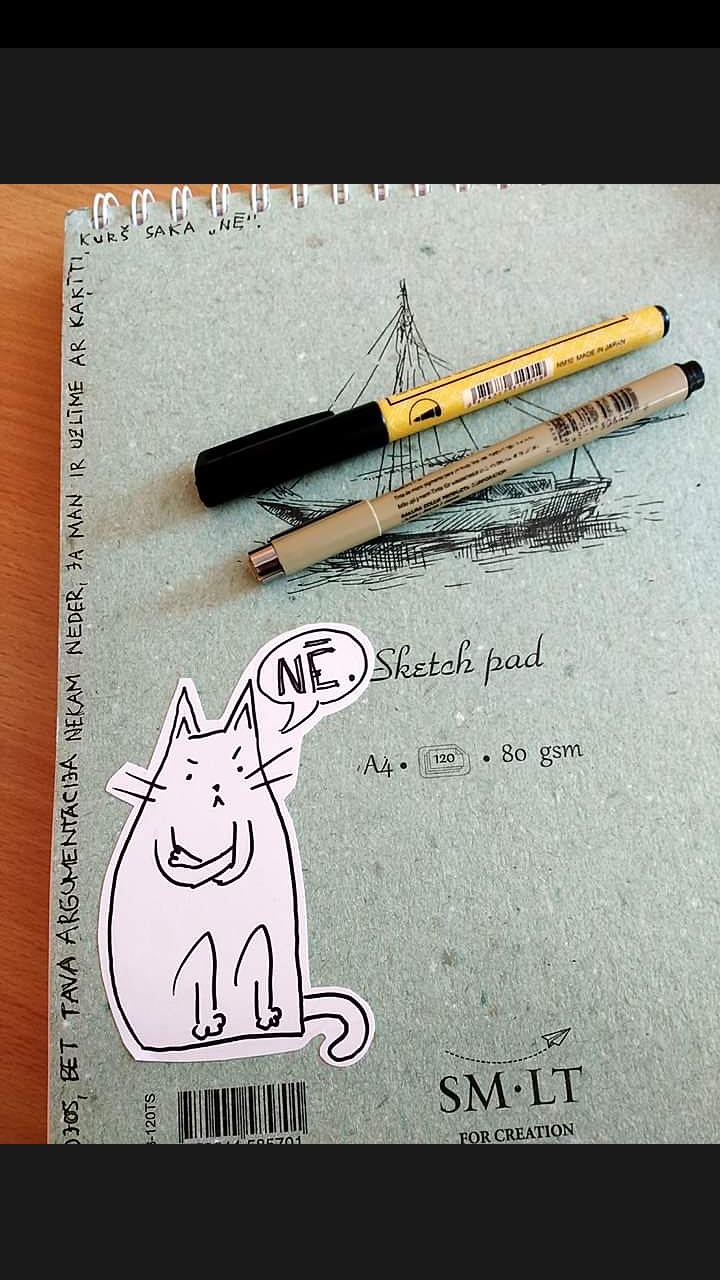 BET TAVA ARGUMENTĀCIJA NEKAM NEDER, JA MAN IR UZLĪME AR KAĶĪTI,
KURŠ SAKA „NĒ".
NM10 MADE IN JAPAN
NĒ.
Sketch pad
A4 • 120 • 80 gsm
SM•LT
FOR CREATION
-120TS